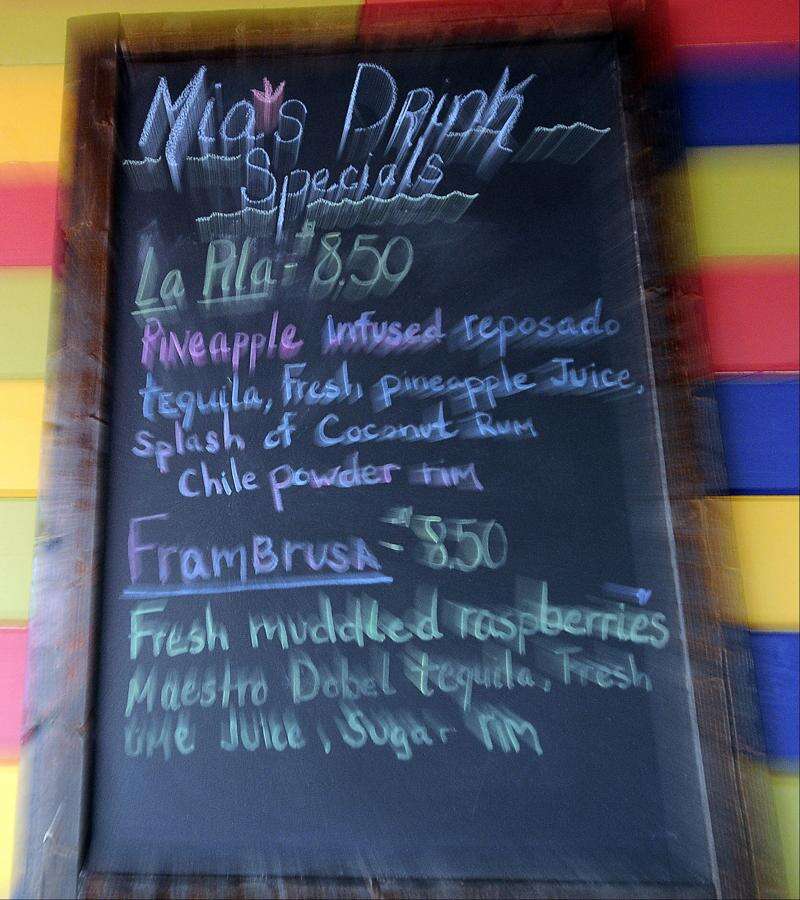 Mia's Drink
Specials
La Pila - $8.50
Pineapple infused reposado
tequila, Fresh pineapple Juice,
splash of Coconut Rum
Chile powder rim
FramBrusa - 8.50
Fresh muddled raspberries
Maestro Dobel tequila, Fresh
lime Juice, Sugar rim